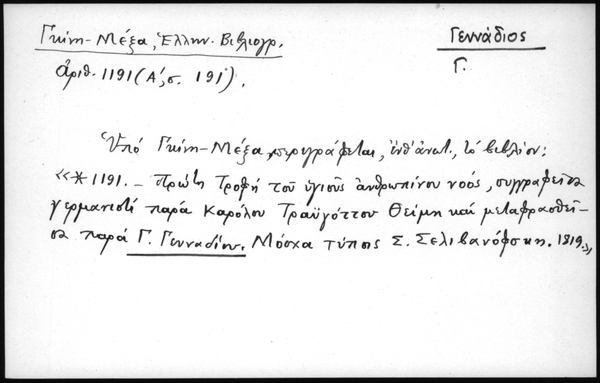 Γκίνη-Μέξα, Ἑλλην. Βιβλιογρ.
ἀριθ. 1191 (Α΄, σ. 191).
Γεννάδιος
Γ.
Ὑπό Γκίνη-Μέξα, περιγράφεται, ἐνθ' ἀνωτ., τό βιβλίον:
«*1191. – Πρώτη Τροφή τοῦ ὑγιοῦς ἀνθρωπίνου νοός, συγγραφεῖσα
γερμανιστί παρά Καρόλου Τραϋγόττου Θείμη καί μεταφρασθεῖ-
σα παρά Γ. Γενναδίου. Μόσχα τύποις Σ. Σελιβανόφσκη. 1819.»